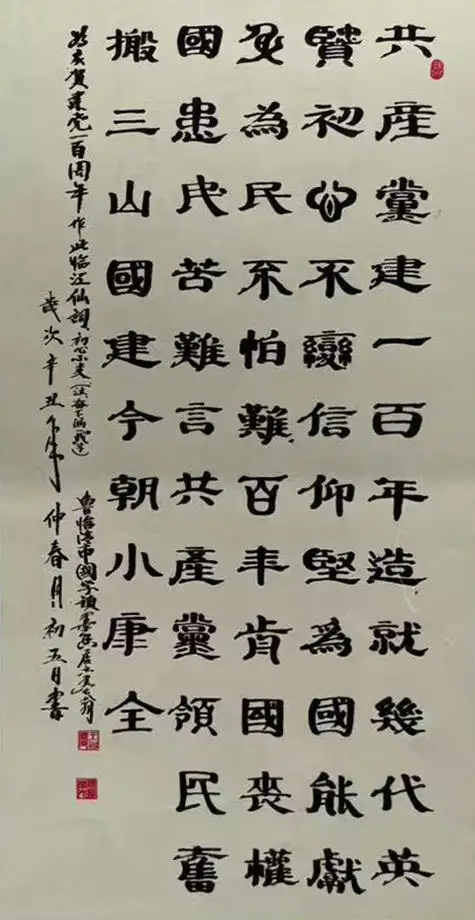 共產黨建一百年造就幾代英
賢初心不變信仰堅為國能獻
身為民不怕難百年前國喪權
國患民苦難言共產黨領民奮
搬三山國建今朝小康全
为庆贺建党一百周年作此临江仙詞初心不变
魯临清市國学
歲次辛丑年
仲春月初五日書